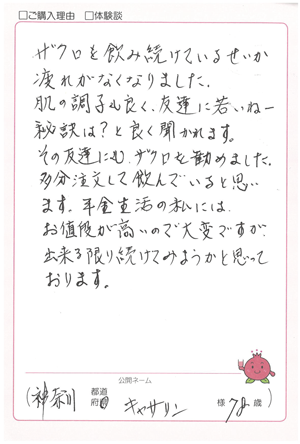 □ご購入理由 □体験談
ザクロを飲み続けているせいか
疲れがなくなりました.
肌の調子も良く、友達に若いねー
秘訣は?と良く聞かれます。
その友達にも、ザクロを勧めました.
多分注文して飲んでいると思い
ます. 年金生活の私には
お値段が高いので大変ですが
出来る限り続けてみようかと思って
おります。
公開ネーム
(神奈川 都道府県 キャサリン 様 歳)